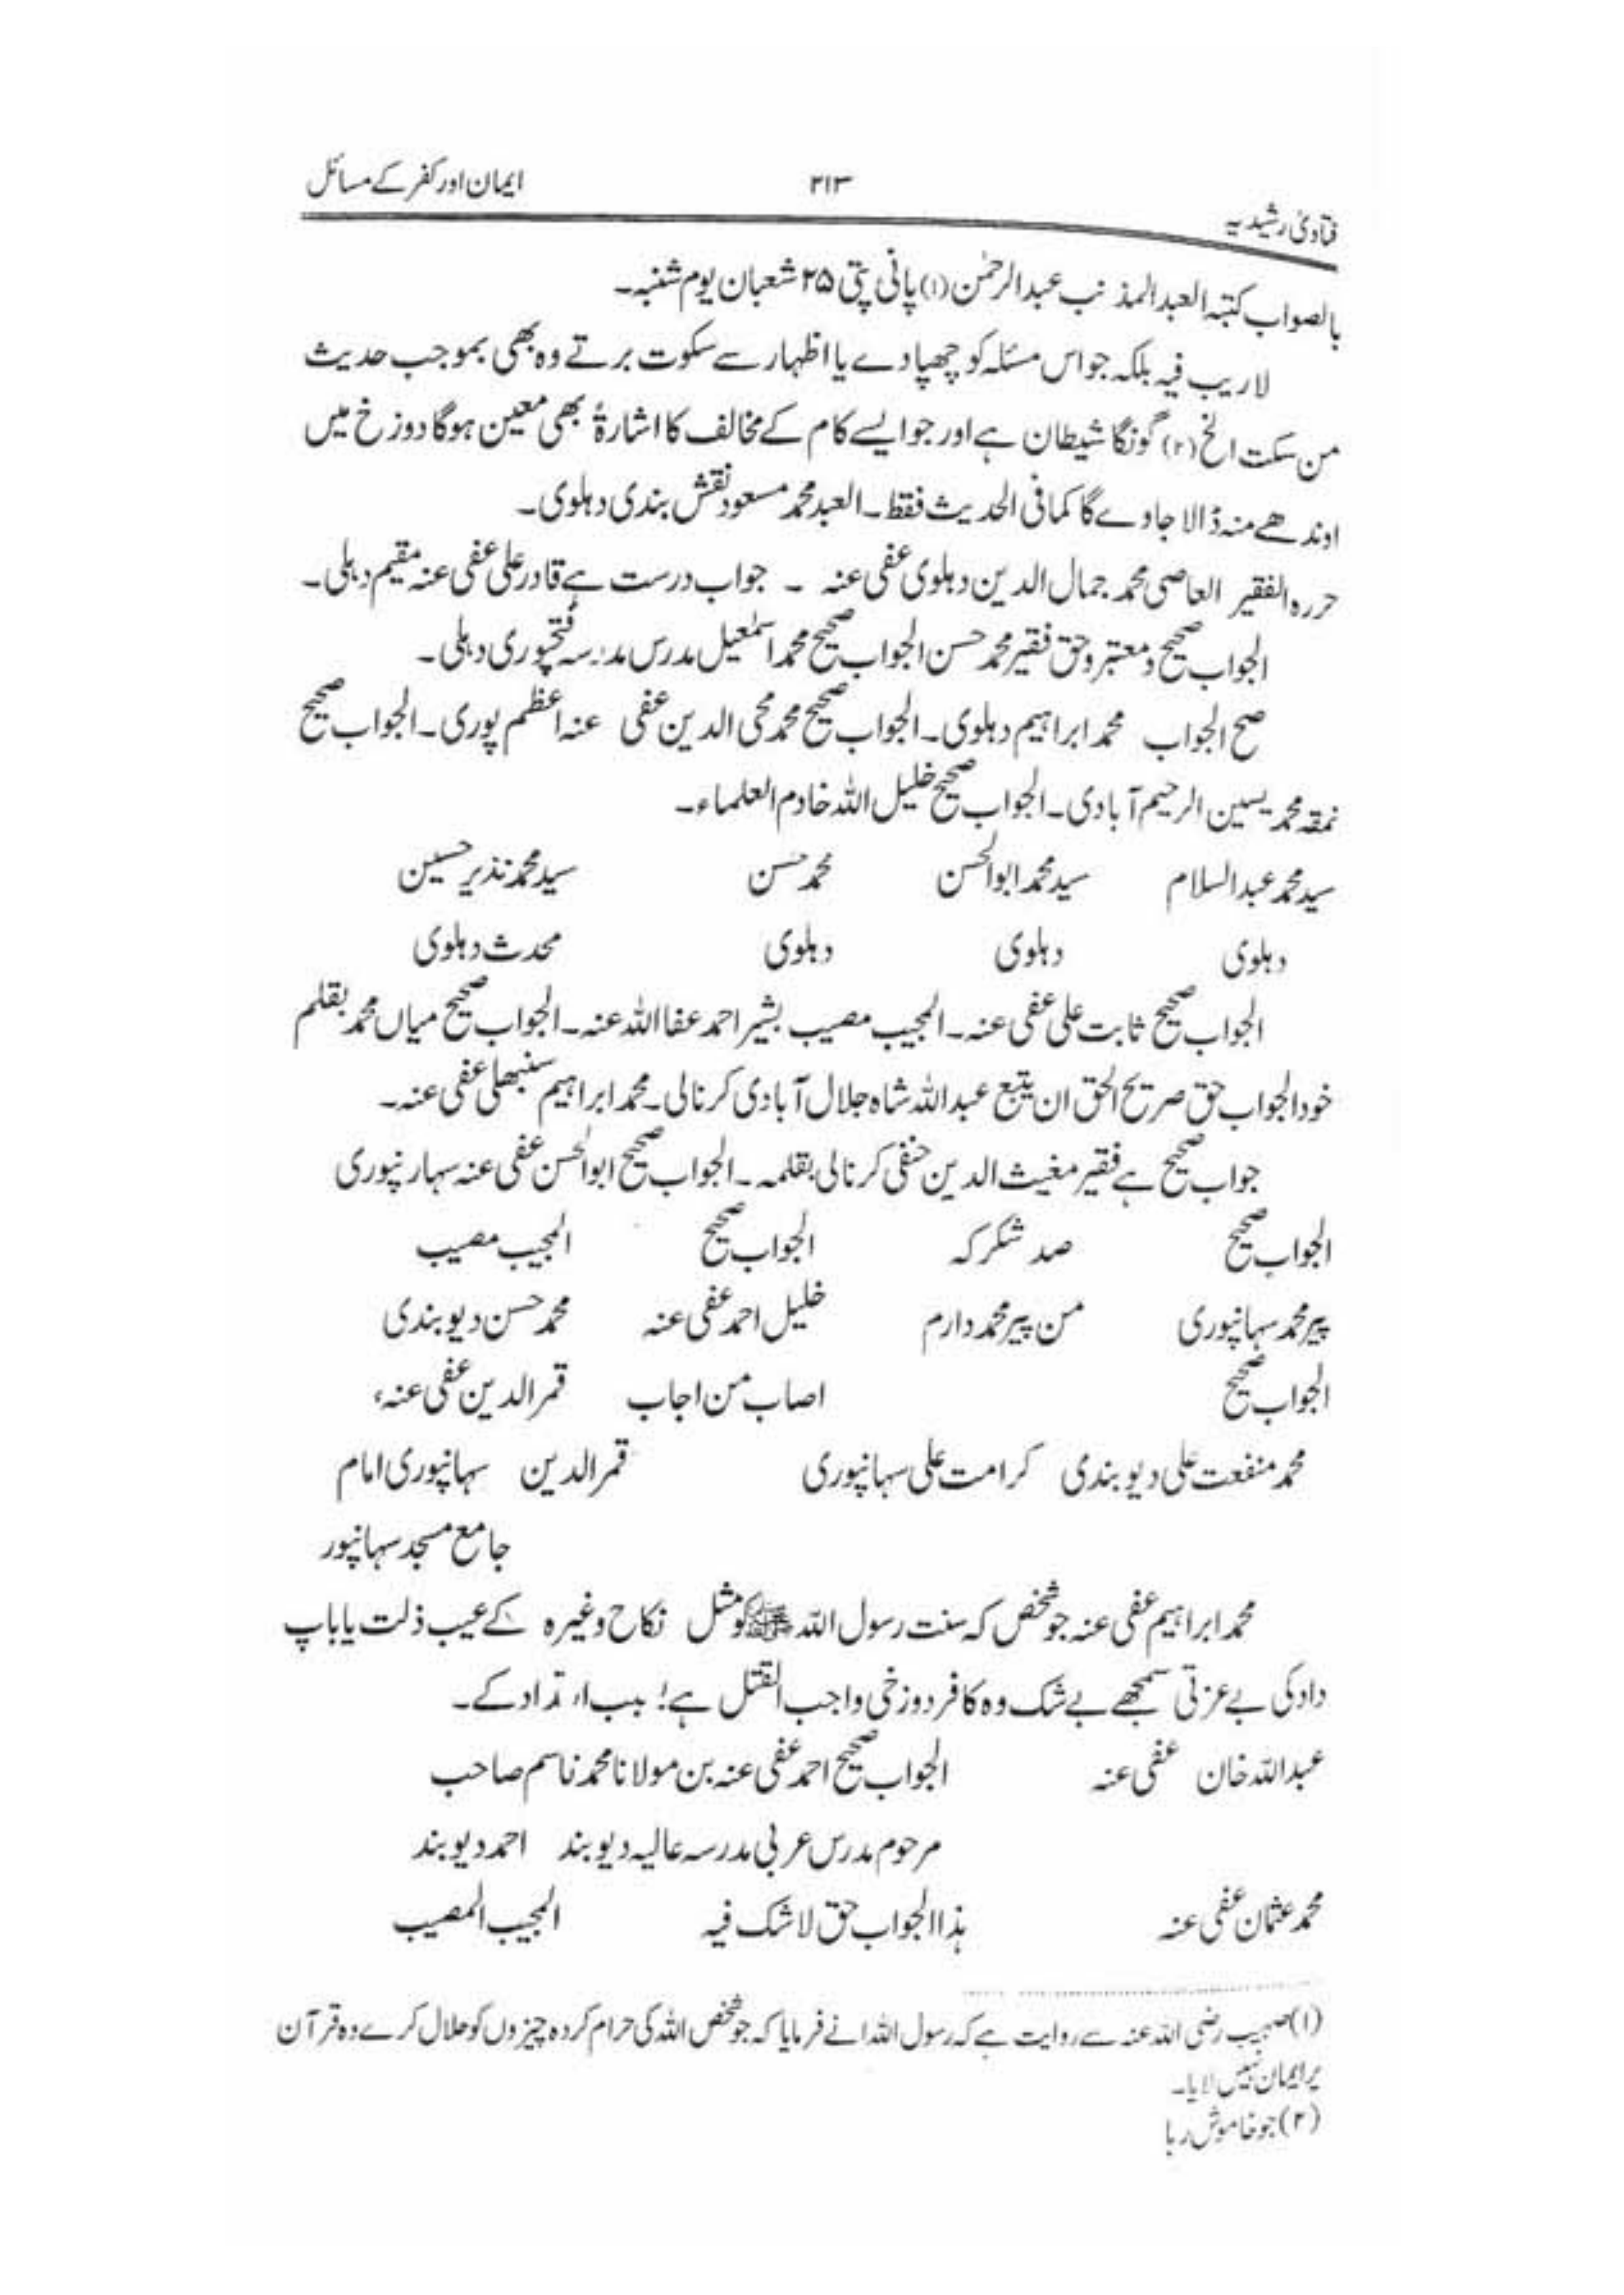 ایمان اور کفر کے مسائل
۲۱۳
فتاویٰ رشیدیہ
بالصواب کتبہ العبد المذنب عبدالرحمٰن (۱) پانی پتی ۲۵ شعبان یوم شنبہ۔
لاریب فیہ بلکہ جو اس مسئلہ کو چھپاوے یا اظہار سے سکوت برتے وہ بھی بموجب حدیث
من سکت الخ (۲) گونگا شیطان ہے اور جو ایسے کام کے مخالف کا اشارۃً بھی معین ہوگا دوزخ میں
اوندھے منہ ڈالا جاوے گا کمافی الحدیث فقط۔ العبد محمد مسعود نقش بندی دہلوی۔
حررہ الفقیر العاصی محمد جمال الدین دہلوی عفی عنہ ۔ جواب درست ہے قادر علی عفی عنہ مقیم دہلی۔
الجواب صحیح و معتبر وحق فقیر محمد حسن الجواب صحیح محمد اسمٰعیل مدرس مدرسہ فتحپوری دہلی۔
صح الجواب محمد ابراہیم دہلوی۔ الجواب صحیح محمد محی الدین عفی عنہ اعظم پوری۔ الجواب صحیح
نمقہ محمد یسین الرحیم آبادی۔ الجواب صحیح خلیل اللہ خادم العلماء۔
سید محمد عبدالسلام سید محمد ابوالحسن محمد حسن سید محمد نذیر حسین
دہلوی دہلوی دہلوی محدث دہلوی
الجواب صحیح ثابت علی عفی عنہ۔ المجیب مصیب بشیر احمد عفا اللہ عنہ۔ الجواب صحیح میاں محمد بقلم
خود الجواب حق صریح الحق ان یتبع عبداللہ شاہ جلال آبادی کرنالی۔ محمد ابراہیم سنبھلی عفی عنہ۔
جواب صحیح ہے فقیر مغیث الدین حنفی کرنالی بقلمہ۔ الجواب صحیح ابوالحسن عفی عنہ سہارنپوری
الجواب صحیح صد شکر کہ الجواب صحیح المجیب مصیب
پیر محمد سہانپوری من پیر محمد دارم خلیل احمد عفی عنہ محمد حسن دیوبندی
الجواب صحیح اصاب من اجاب قمر الدین عفی عنہ،
محمد منفعت علی دیوبندی کرامت علی سہانپوری قمر الدین سہانپوری امام
جامع مسجد سہانپور
محمد ابراہیم عفی عنہ جو شخص کہ سنت رسول اللہ ﷺ کو مثل نکاح وغیرہ کے عیب ذلت یا باپ
داد کی بے عزتی سمجھے بے شک وہ کافر دوزخی واجب القتل ہے بسبب ارتداد کے۔
عبداللہ خان عفی عنہ الجواب صحیح احمد عفی عنہ بن مولانا محمد قاسم صاحب
مرحوم مدرس عربی مدرسہ عالیہ دیوبند احمد دیوبند
محمد عثمان عفی عنہ ہذا الجواب حق لا شک فیہ المجیب المصیب
(۱) صہیب رضی اللہ عنہ سے روایت ہے کہ رسول اللہ انے فرمایا کہ جو شخص اللہ کی حرام کردہ چیزوں کو حلال کرے وہ قرآن
پر ایمان نہیں لایا۔
(۲) جو خاموش رہا